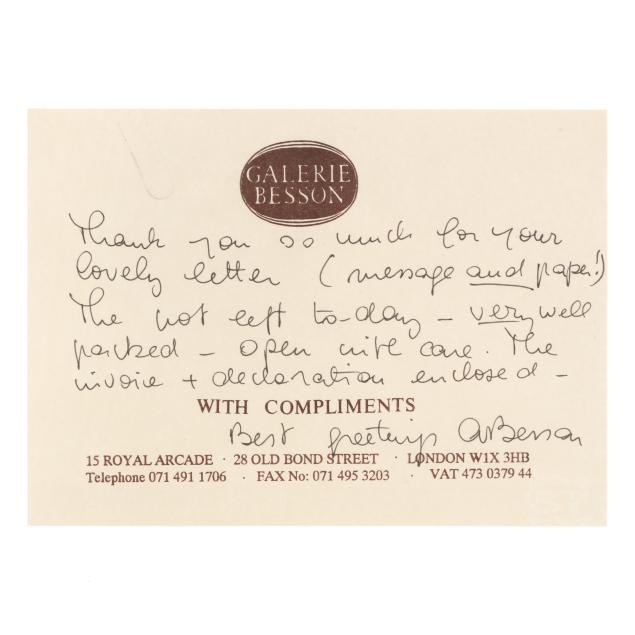 GALERIE
BESSON
Thank you so much for your
lovely letter (message and paper!)
The pot left to-day - very well
packed - open with care. The
invoice + declaration enclosed -
WITH COMPLIMENTS
Best greetings ABesson
15 ROYAL ARCADE · 28 OLD BOND STREET · LONDON W1X 3HB
Telephone 071 491 1706 · FAX No: 071 495 3203 · VAT 473 0379 44